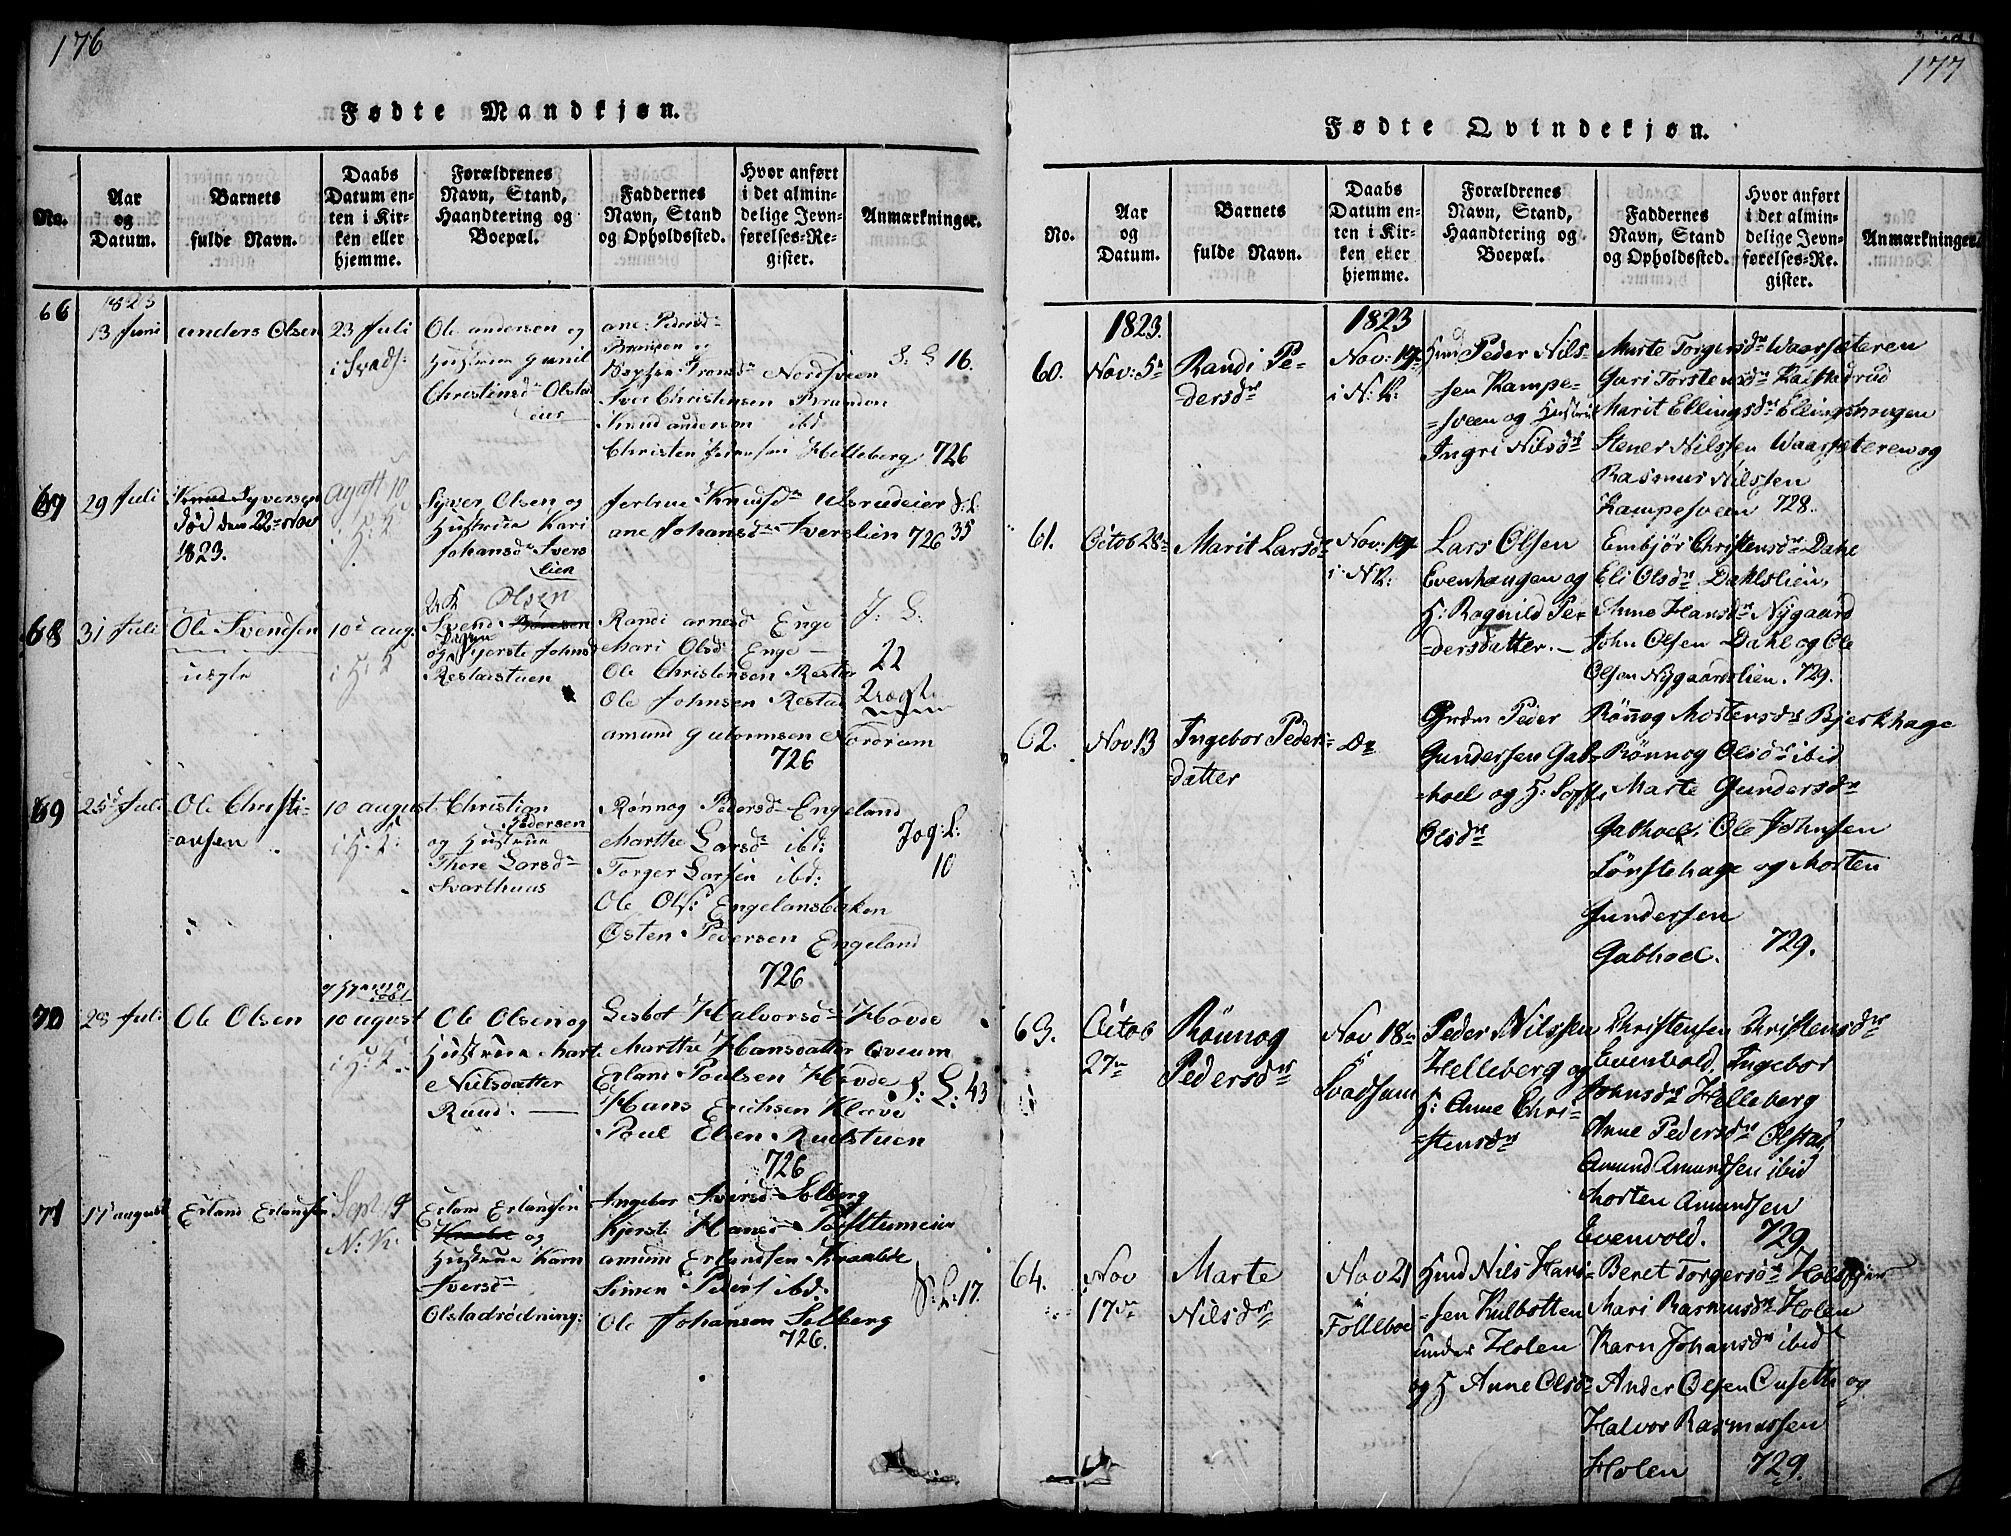 176
Fødte Mandkjøn.
No.
Aar og Datum.
Barnets fulde Navn.
Daabs Datum enten i Kirken eller hjemme.
Forældrenes Navn, Stand, Haandtering og Boepæl.
Faddernes Navn, Stand og Opholdssted.
Hvor anført i det almindelige Jevnførelses-Register.
Anmærkninger.
66
1823
13 Juni
anders Olsen
23 Juli
i Svads:
Ole andersen og
Hustrue Gunil
Christensd Olstad
eier
ane Pedersd
Nordsveen
Iver Christensen Branden
Knud anderson ibd
Christen Helleberg 726
S: L 16.
67
29 Juli
Knud Syversen
död dem 22 Nov
1823.
10
H: K
Syver Olsen og
Hustrue Kari
Johansd Ivers
lien
Knudsd Ulsrudeier
ane Johansd Iverslien 726
S: L:
35
68
31 Juli
Ole Svendsen
uægte
10 aug
i H: K
Olsen
Svend
og Kjerste Johnsd
Restadstuen
Randi arnesd Enge
Mari Olsd Enge
Ole Christensen Restad
Ole Johnsen Restad
amund Guttormsen Nordrum
726
J: L:
22
Uægte
69
25 Juli
Ole Christi-
ansen
10 august
i H: K:
Christian
Pedersen
og Hustrue
Thore Larsd
Svarthuus
Rønnog Pedersd Engeland
Marthe Larsd ibd:
Torger Larsen ibd:
Ole Ols: Engelansbaken
Østen Pedersen Engeland
726
Jog: L:
10
70
28 Juli
Ole Olsen
10 august
i H: K.
Ole Olsen og
Hustrue Mart
e Nilsdatter
Ruud.
Lisbot Halvorsd Hovde
Marthe Hansdatter Qveum
Erland Poulsen Hovde
Hans Erichsen Klæve
Poul Elsen Rudstuen
726
S: L: 43
71
17 august
Erland Erlandsen
Sept 9
N: K.
Erland Erlandsen
Kraabe og
Hustrue Karn
Iversd
Olstadrödning:
Ingebor Iversd Solberg
Kjerst Hansd
amund Erlandsen Kraabe
Simen Peders ibd:
Ole Johansen Solberg
726.
S: L: 17.
177
Fødte Qvindekjøn.
No.
Aar og Datum.
Barnets fulde Navn.
Daabs Datum enten i Kirken eller hjemme.
Forældrenes Navn, Stand, Haandtering og Boepæl.
Faddernes Navn, Stand og Opholdssted.
Hvor anført i det almindelige Jevnførelses-Register.
Anmærkninger.
1823.
1823
60.
Nov: 5
Randi Pe-
dersdr
Nov: 19
i N: K:
Peder Nils-
sen Kampe-
sveen og Hustrue
Ingri Nilsdr
Marte Torgersdr Waarsæteren
Guri Torstensdr Kalstadrud
Marit Ellingsdr Ellingshaugen
Stener Nilssen Waarsæteren og
Rasmus Nilssen
Kampesveen 728.
61.
Octob 28
Marit Larsdr
Nov: 19
i N: K:
Lars Olsen
Evenhaugen og
H: Ragnild Pe-
dersdatter.
Embjør Christensdr Dahl
Eli Olsdr Dahlslien,
Anne Hansdr Nygaard
John Olsen Dahl og Ole
Olsen Nygaardslien. 729.
62.
Nov 13
Ingebor Peders-
datter
Do
Peder
Gundersen Gab-
hoel og H: Soffi
Olsdr
Rönnog Mortensdr Bjerkhage
Rönnog Olsdr ibid
Marte Gundersdr
Gabhoel, Ole Johnsen
Lönstehage og Morten
Gundersen
Gabhoel. 729.
63.
Octob
27
Rönnog
Pedersdr
Nov 18
i
Svadsum
Peder Nilssen
Helleberg og
H: Anne Chri-
stensdr
Christensen Christensdr
Evenvold, Ingebor
Johnsdr Helleberg
Anne Pedersdr Olstad,
Amund Amundsen ibid
Morten Amundsen
Evenvold. 729.
64.
Nov
17
Marte
Nilsdr
Nov 21
i
Folleboe
Nils Han-
sen Kulbotten
under Holen
og H Anne Olsdr
Beret Torgersdr
Mari Rasmusdr Holen
Karn Johansdr ibid
Ander Olsen og
Halvor Rasmussen
Holen 729.